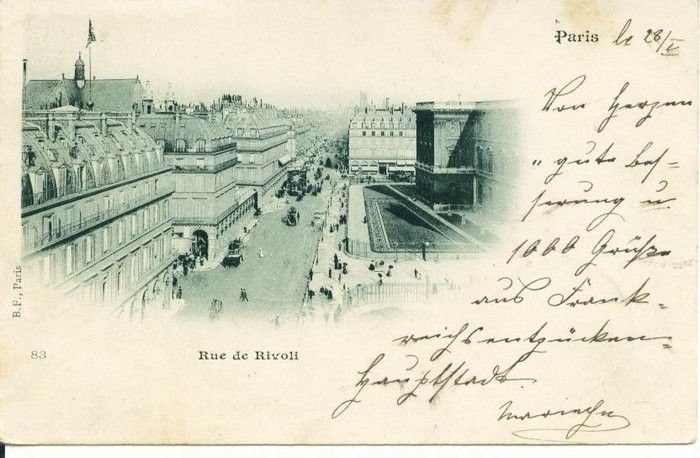 Paris le 28/V
Von Herzen
„gute Bes-
serung u
1000 Grüße
aus Frank-
reichs entzücken-
Hauptstadt.
B.F., Paris
83
Rue de Rivoli